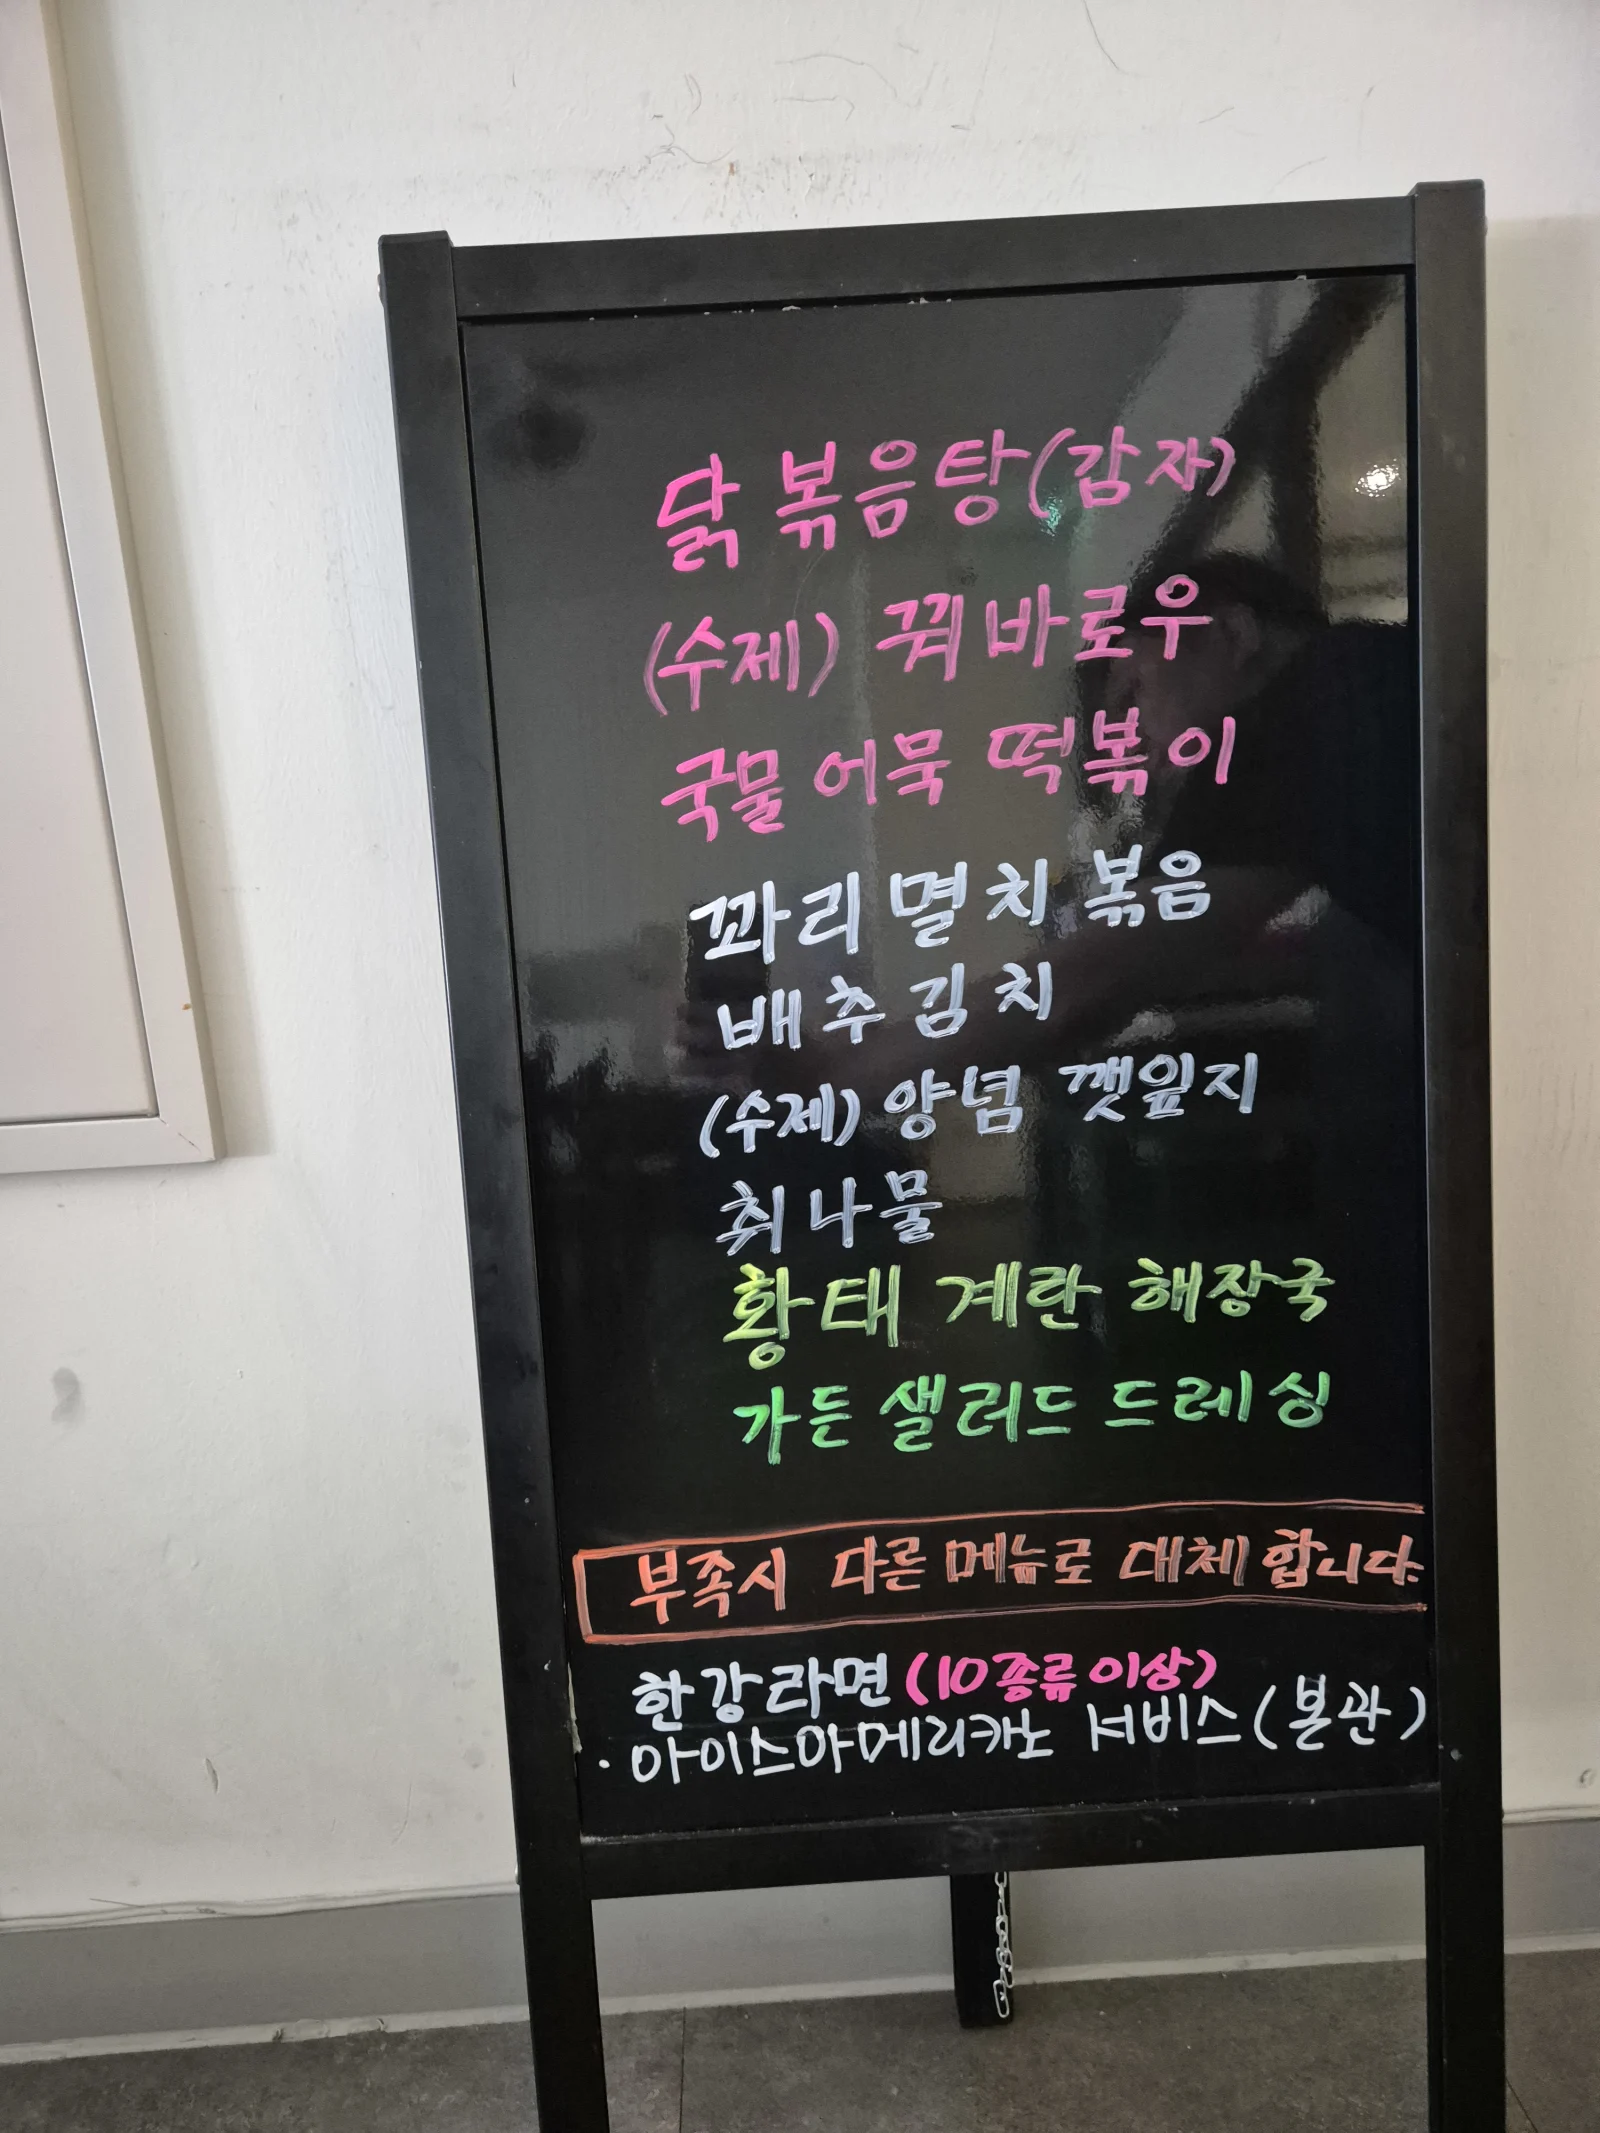 닭볶음탕(감자)
(수제) 꿔바로우
국물어묵 떡볶이
꽈리멸치볶음
배추김치
(수제)양념 깻잎지
취나물
황태 계란 해장국
가든 샐러드 드레싱
부족시 다른 메뉴로 대체 합니다.
한강라면 (10종류 이상)
· 아이스아메리카노 서비스(본관)